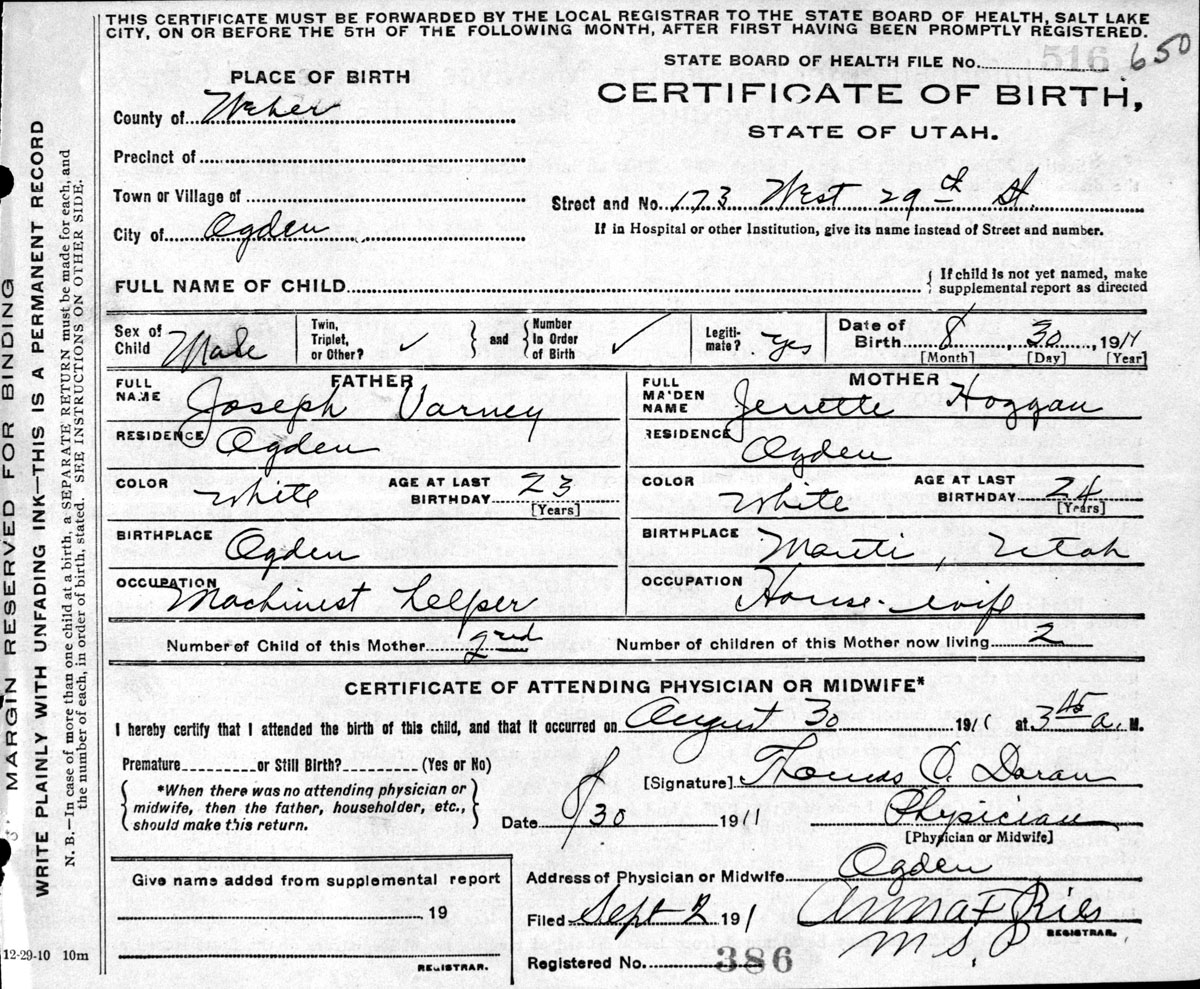 THIS CERTIFICATE MUST BE FORWARDED BY THE LOCAL REGISTRAR TO THE STATE BOARD OF HEALTH, SALT LAKE
CITY, ON OR BEFORE THE 5TH OF THE FOLLOWING MONTH, AFTER FIRST HAVING BEEN PROMPTLY REGISTERED.
STATE BOARD OF HEALTH FILE No. 516 650
PLACE OF BIRTH
CERTIFICATE OF BIRTH,
STATE OF UTAH.
County of Weber
Precinct of
Town or Village of
Street and No. 173 West 29th St.
City of Ogden
If in Hospital or other Institution, give its name instead of Street and number.
FULL NAME OF CHILD
If child is not yet named, make
supplemental report as directed
Sex of Child Male
Twin, Triplet, or Other? ✓
and Number In Order of Birth ✓
Legiti-mate? Yes
Date of Birth 8, 30, 1911
[Month] [Day] [Year]
FATHER
FULL NAME Joseph Varney
RESIDENCE Ogden
COLOR White AGE AT LAST BIRTHDAY 23 [Years]
BIRTHPLACE Ogden
OCCUPATION Machinest helper
MOTHER
FULL MAIDEN NAME Jenette Hoggan
RESIDENCE Ogden
COLOR White AGE AT LAST BIRTHDAY 24 [Years]
BIRTHPLACE Manti, Utah
OCCUPATION House-wife
Number of Child of this Mother 2nd Number of children of this Mother now living 2
CERTIFICATE OF ATTENDING PHYSICIAN OR MIDWIFE*
I hereby certify that I attended the birth of this child, and that it occurred on August 30 1911 at 3 45 a. M.
Premature or Still Birth? (Yes or No)
*When there was no attending physician or
midwife, then the father, householder, etc.,
should make this return.
[Signature] Thomas O. Doran
Date 8/30 1911 Physician
[Physician or Midwife]
Address of Physician or Midwife Ogden
Filed Sept 2 1911 Anna F Ries
REGISTRAR.
Registered No. 386
Give name added from supplemental report
19
REGISTRAR.
12-29-10 10m
MARGIN RESERVED FOR BINDING
WRITE PLAINLY WITH UNFADING INK—THIS IS A PERMANENT RECORD
N. B.—In case of more than one child at a birth, a SEPARATE RETURN must be made for each, and
the number of each, in order of birth, stated. SEE INSTRUCTIONS ON OTHER SIDE.